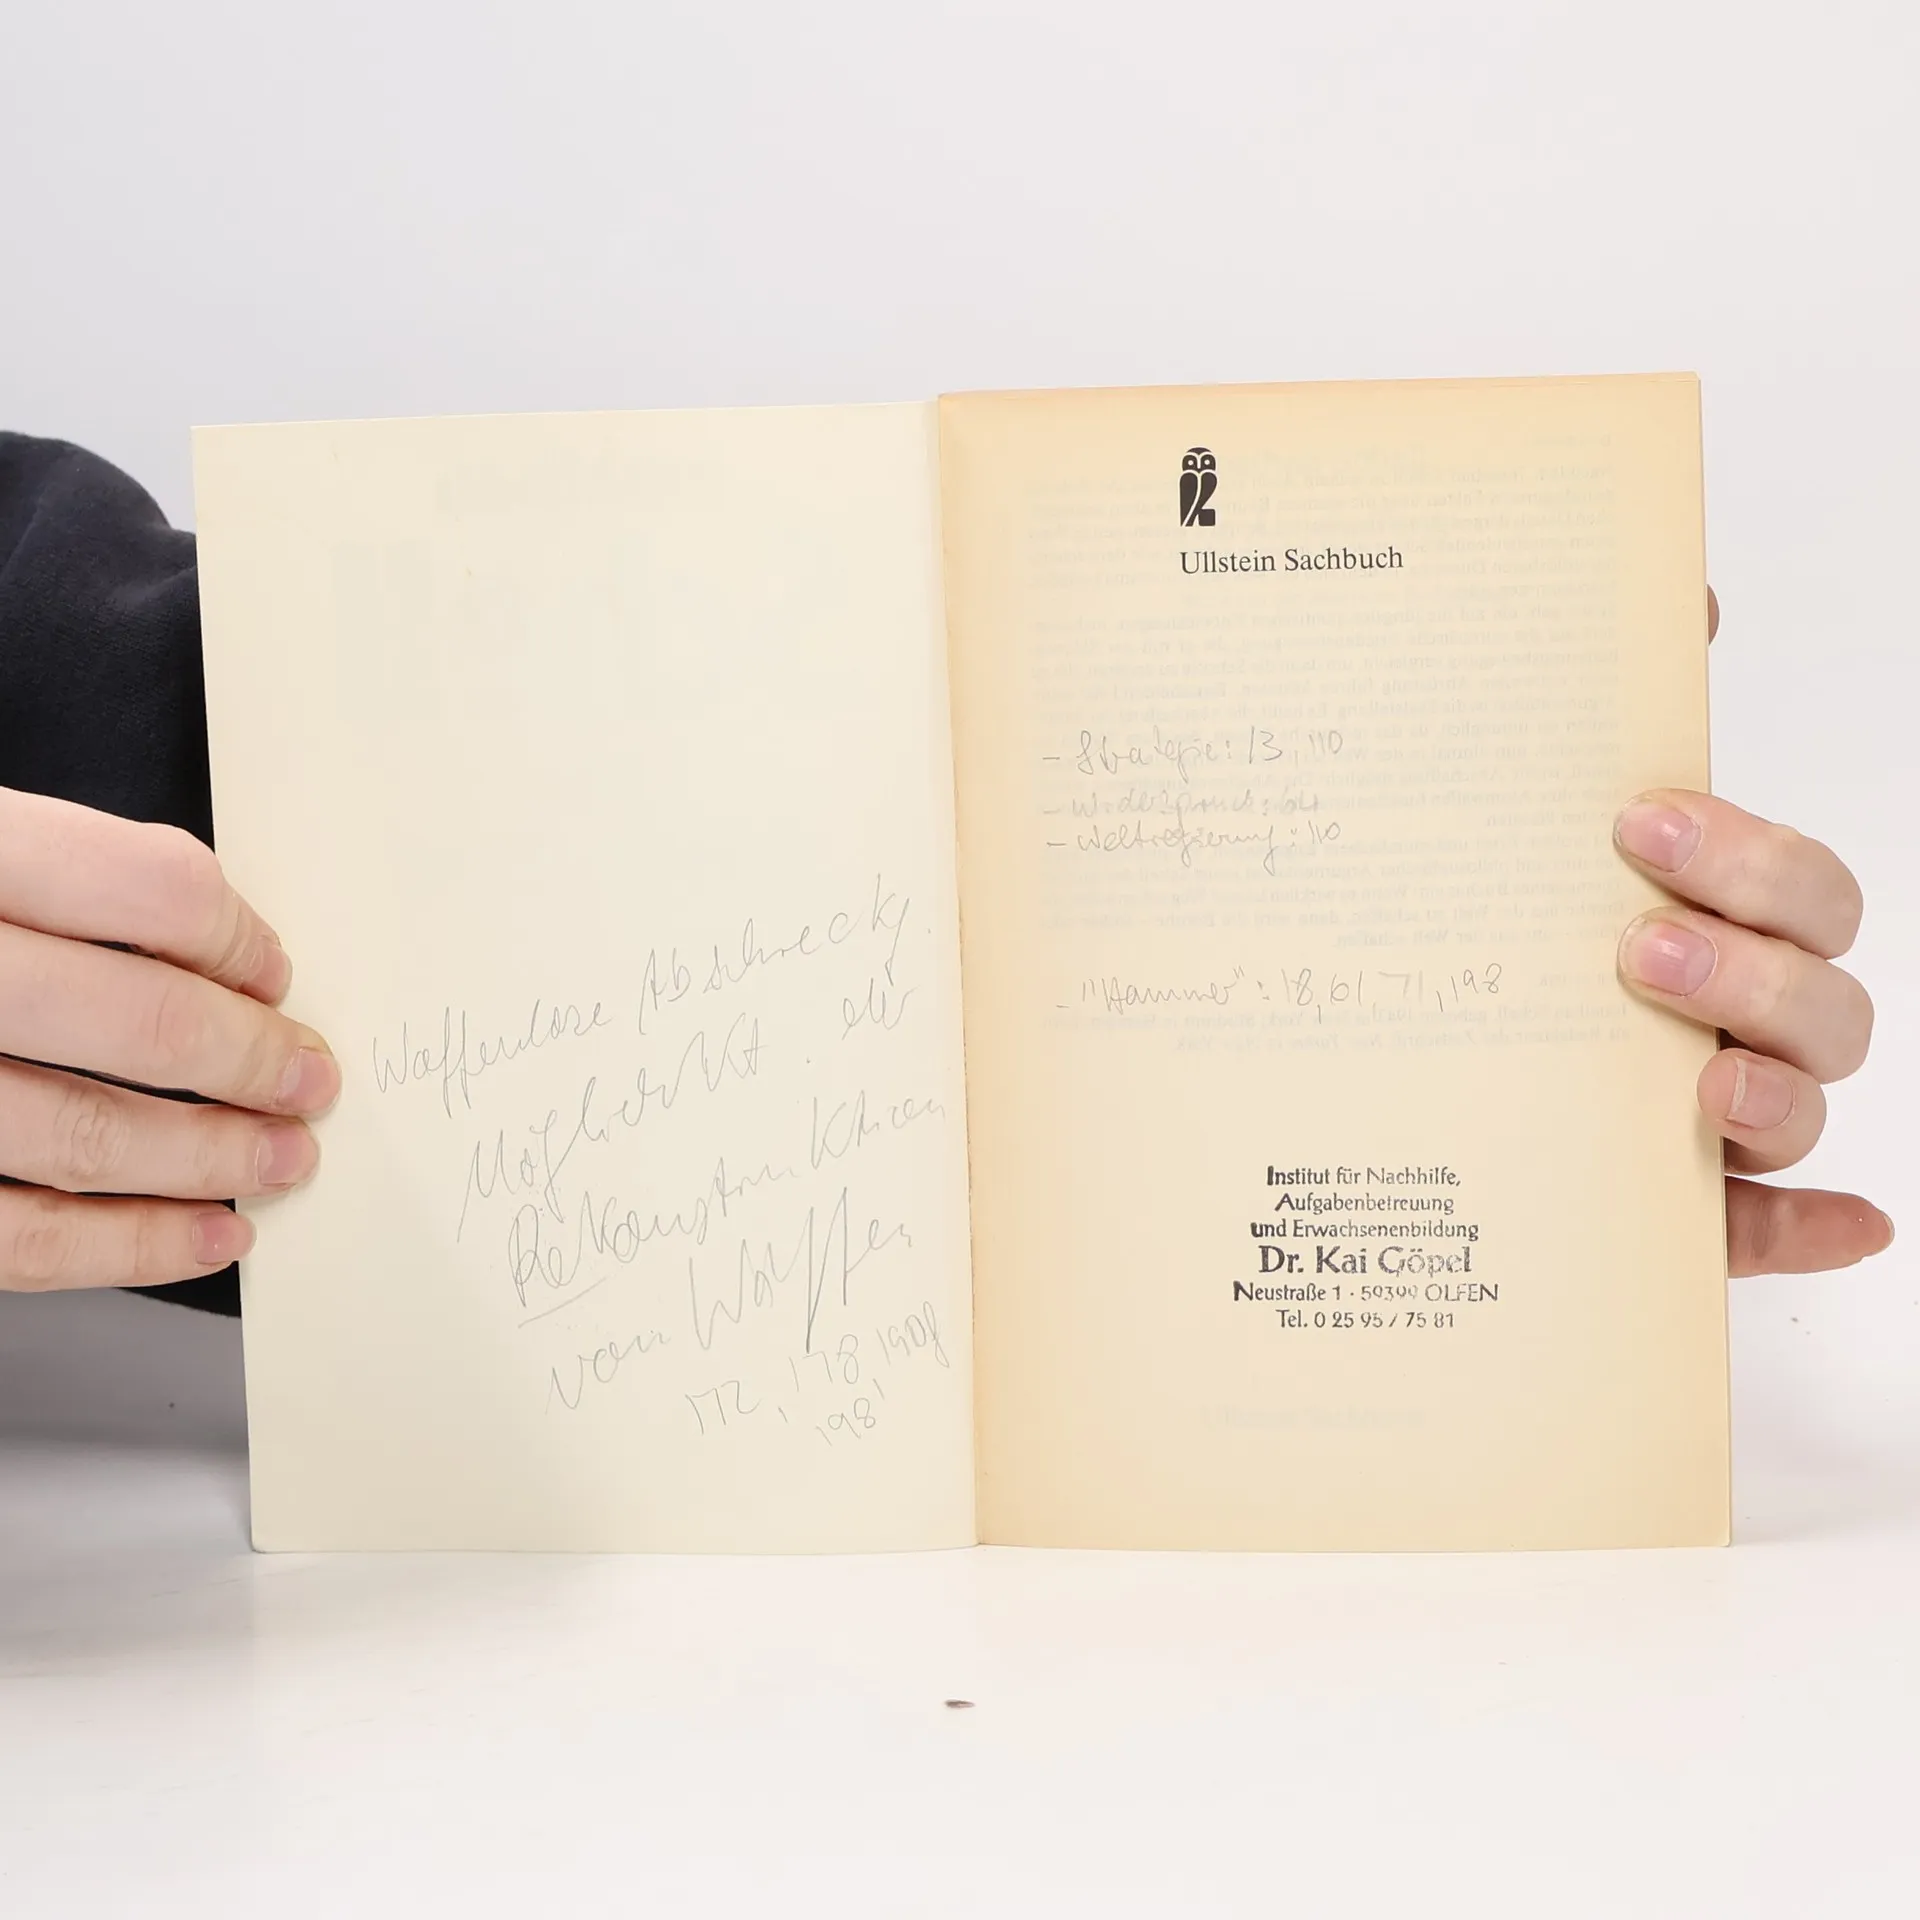 Waffenlose Abschreckg.
Möglichkeit der
Rekonstruktion
von Waffen
172, 178, 190f
198
Ullstein Sachbuch
- Strategie: 13, 110
- Widerspruch: 64
- Weltregierung: 110
- "Hammer": 18, 61 71, 198
Institut für Nachhilfe,
Aufgabenbetreuung
und Erwachsenenbildung
Dr. Kai Göpel
Neustraße 1 · 59399 OLFEN
Tel. 0 25 95 / 75 81